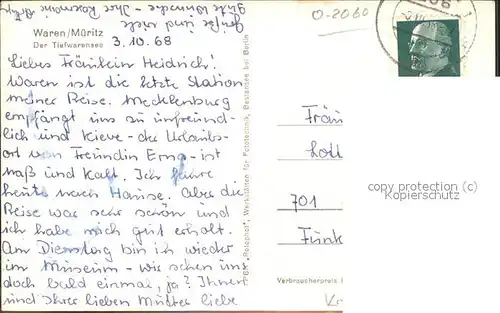 Grüße und viele
gute Wünsche - Ihre
O-2060
Waren/Müritz
Der Tiefwarensee
3.10.68
Liebes Fräulein Heidrich!
Waren ist die letzte Station
meiner Reise. Mecklenburg
empfängt uns so unfreund-
lich und Kieve - der Urlaubs-
ort von Freundin Erna - ist
naß und kalt. Ich fahre
heute nach Hause. Aber die
Reise war sehr schön und
ich habe mich gut erholt.
Am Dienstag bin ich wieder
im Museum - wir sehen uns
doch bald einmal, ja? Ihnen
und Ihrer lieben Mutter liebe
"Fotopost", Werkstätten für Fototechnik, Bestensee bei Berlin
Fräu
Lott
701
Funk
copyright preview (c)
Kopierschutz
Verbraucherpreis